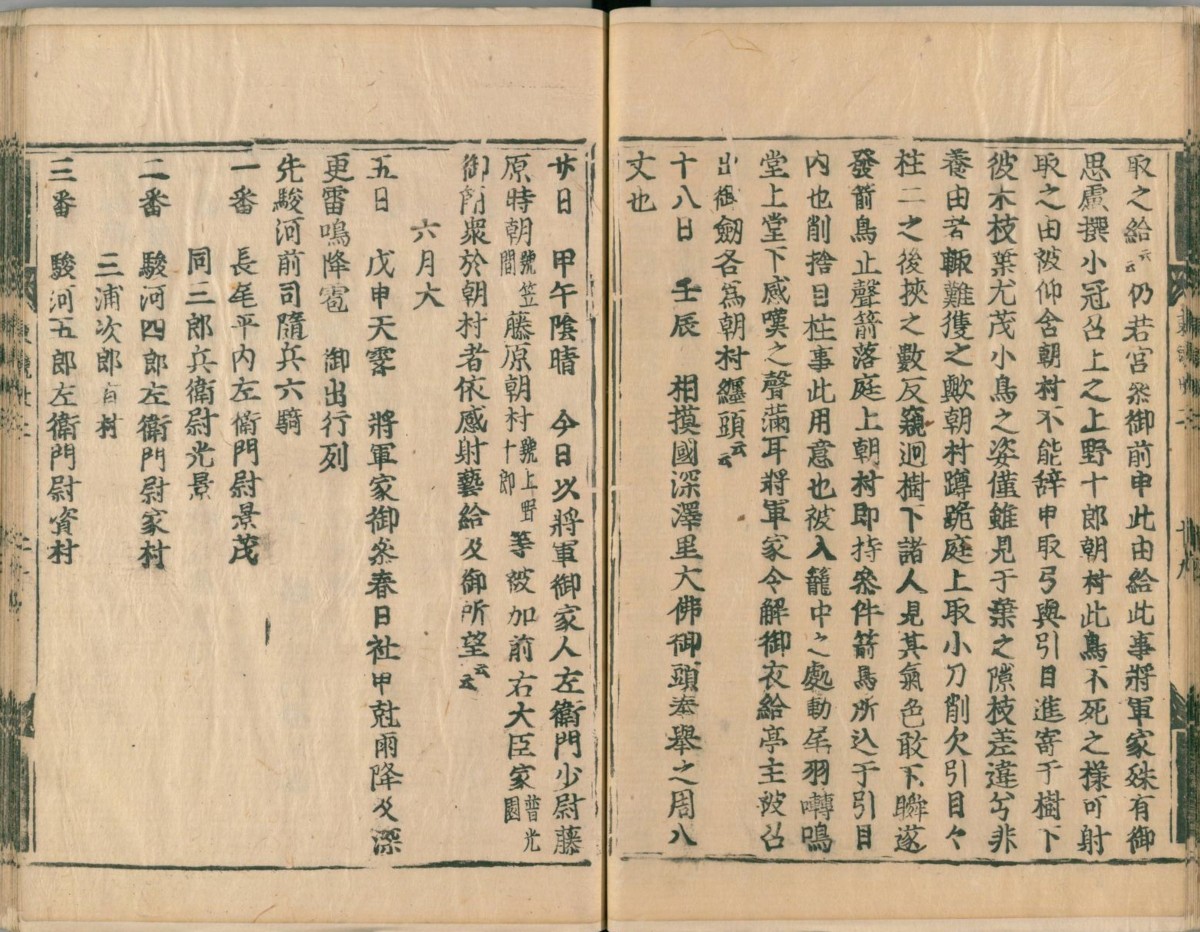 取之給云云仍若宮参御前申此由給此事將軍家殊有御
思慮撰小冠召上之上野十郎朝村此鳥不死之様可射
取之由被仰含朝村不能辞申取弓與引目進寄于樹下
彼木枝葉尤茂小鳥之姿僅雖見于葉之隙枝差違兮非
養由者輙難獲之歟朝村蹲跪庭上取小刀削欠引目々
柱二之後挾之數反窺迴樹下諸人見其氣色敢不瞬遂
發箭鳥止聲箭落庭上朝村即持参件箭鳥所込于引目
内也削捨目柱事此用意也被入籠中之處動尾羽囀鳴
堂上堂下感嘆之聲滿耳將軍家令解御衣給亭主被召
出御劔各爲朝村纒頭云云
十八日 壬辰 相摸國深澤里大佛御頭奉舉之周八
丈也
廿日 甲午陰晴 今日以將軍御家人左衛門少尉藤
原時朝號笠間藤原朝村號上野十郎等被加前右大臣家普光園
御簡衆於朝村者依感射藝給及御所望云云
六月大
五日 戊申天霽 將軍家御参春日社甲尅雨降及深
更雷鳴降雹 御出行列
先駿河前司隨兵六騎
一番 長尾平内左衛門尉景茂
同三郎兵衛尉光景
二番 駿河四郎左衛門尉家村
三浦次郎有村
三番 駿河五郎左衛門尉資村